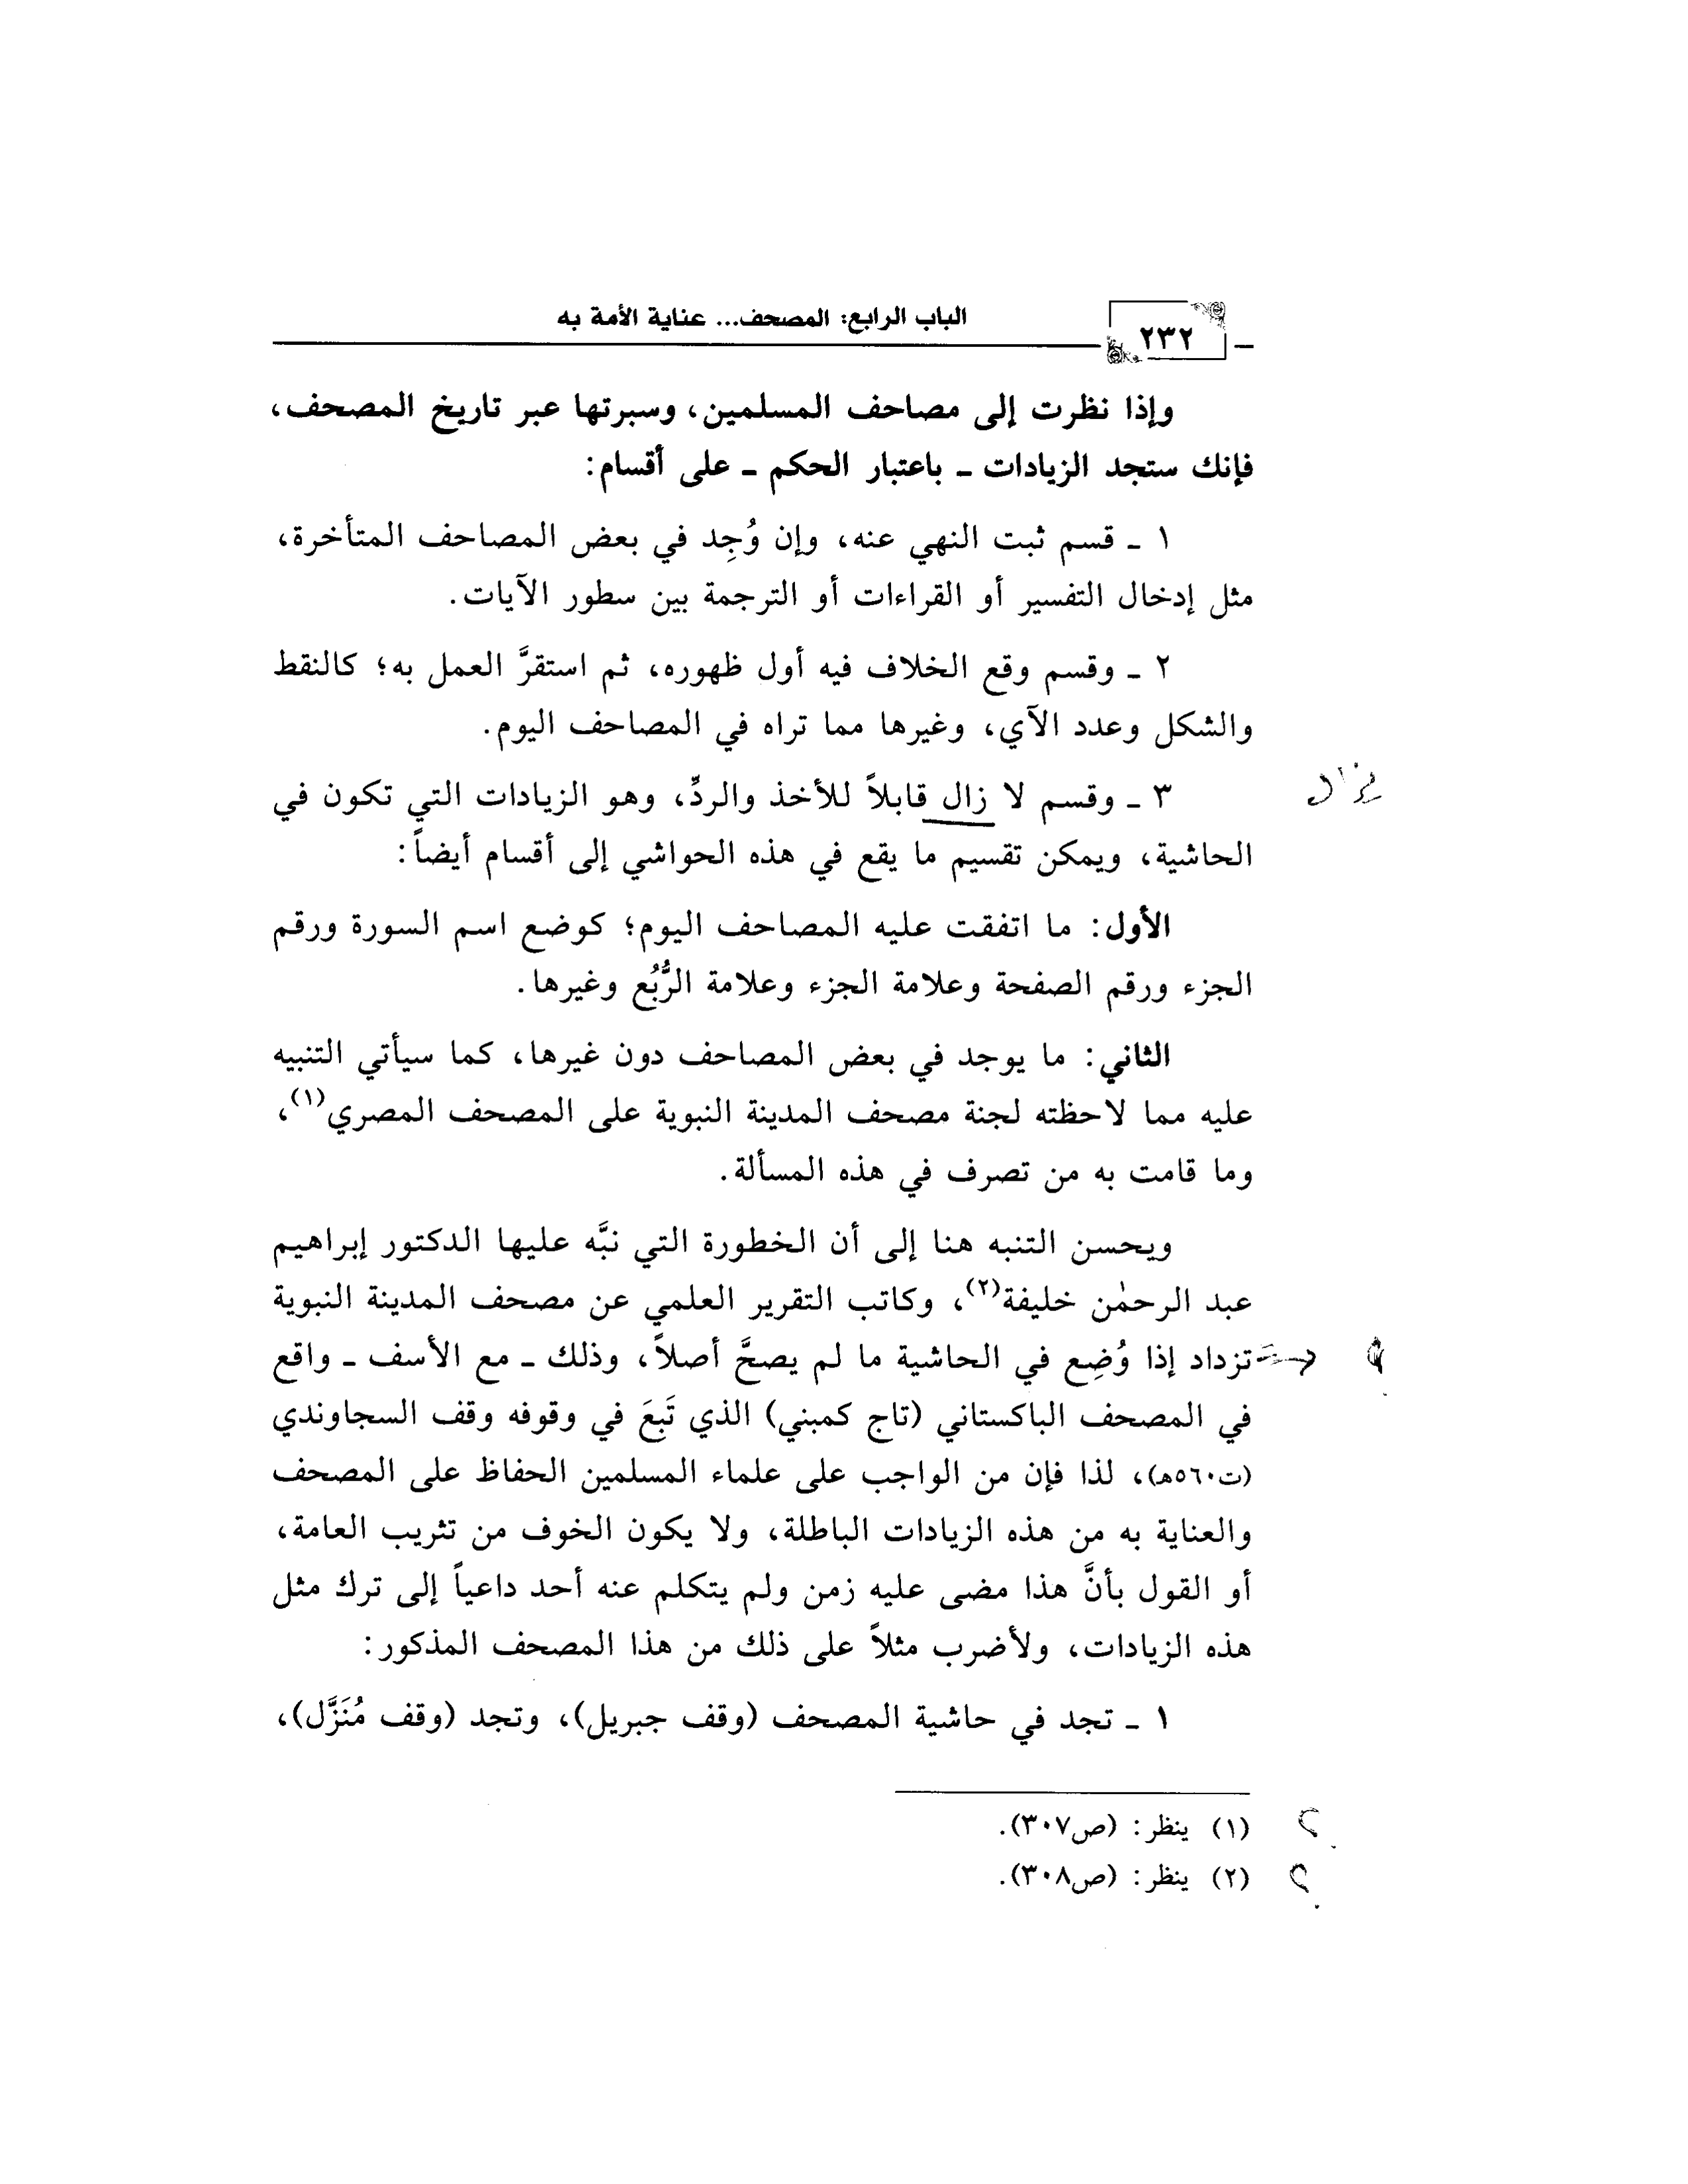 الباب الرابع: المصحف... عناية الأمة به
٢٣٢
وإذا نظرت إلى مصاحف المسلمين، وسبرتها عبر تاريخ المصحف،
فإنك ستجد الزيادات ـ باعتبار الحكم ـ على أقسام:
١ ـ قسم ثبت النهي عنه، وإن وُجِد في بعض المصاحف المتأخرة،
مثل إدخال التفسير أو القراءات أو الترجمة بين سطور الآيات.
٢ ـ وقسم وقع الخلاف فيه أول ظهوره، ثم استقرَّ العمل به؛ كالنقط
والشكل وعدد الآي، وغيرها مما تراه في المصاحف اليوم.
٣ ـ وقسم لا زال قابلاً للأخذ والردِّ، وهو الزيادات التي تكون في
الحاشية، ويمكن تقسيم ما يقع في هذه الحواشي إلى أقسام أيضاً:
الأول: ما اتفقت عليه المصاحف اليوم؛ كوضع اسم السورة ورقم
الجزء ورقم الصفحة وعلامة الجزء وعلامة الرُّبُع وغيرها.
الثاني: ما يوجد في بعض المصاحف دون غيرها، كما سيأتي التنبيه
عليه مما لاحظته لجنة مصحف المدينة النبوية على المصحف المصري(١)،
وما قامت به من تصرف في هذه المسألة.
ويحسن التنبه هنا إلى أن الخطورة التي نبَّه عليها الدكتور إبراهيم
عبد الرحمٰن خليفة(٢)، وكاتب التقرير العلمي عن مصحف المدينة النبوية
تزداد إذا وُضِع في الحاشية ما لم يصحَّ أصلاً، وذلك ـ مع الأسف ـ واقع
في المصحف الباكستاني (تاج كمبني) الذي تَبِعَ في وقوفه وقف السجاوندي
(ت٥٦٠هـ)، لذا فإن من الواجب على علماء المسلمين الحفاظ على المصحف
والعناية به من هذه الزيادات الباطلة، ولا يكون الخوف من تثريب العامة،
أو القول بأنَّ هذا مضى عليه زمن ولم يتكلم عنه أحد داعياً إلى ترك مثل
هذه الزيادات، ولأضرب مثلاً على ذلك من هذا المصحف المذكور:
١ ـ تجد في حاشية المصحف (وقف جبريل)، وتجد (وقف مُنَزَّل)،
(١) ينظر: (ص٣٠٧).
(٢) ينظر: (ص٣٠٨).